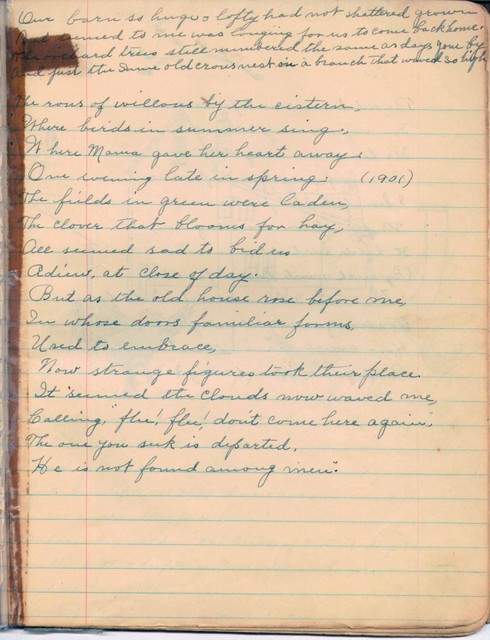 Our barn so huge & lofty had not shattered grown
But seemed to me was longing for us to come back home.
The orchard trees still numbered the same as days gone by
And just the same old crows nest in a branch that waved so high
The rows of willows by the cistern,
Where birds in summer sing.
Where Mama gave her heart away.
One evening late in spring. (1901)
The fields in green were laden,
The clover that blooms for hay,
All seemed sad to bid us
Adieu, at close of day.
But as the old house rose before me,
In whose doors familiar forms,
Used to embrace,
Now strange figures took their place.
It seemed the clouds now waved me,
Calling, "flee! flee! don't come here again,
The one you seek is departed.
He is not found among men".